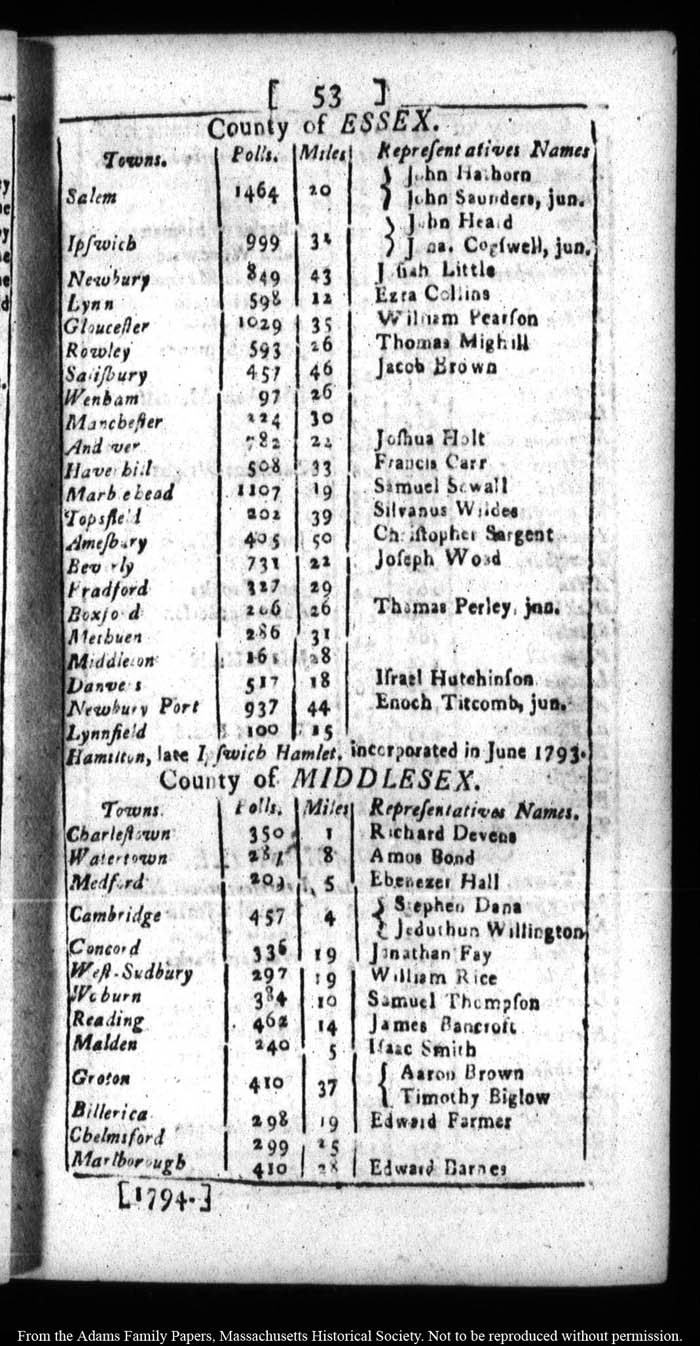 [ 53 ]
County of ESSEX.
Towns. Polls. Miles Repreſentatives Names
Salem 1464 20 John Hathorn
John Saunders, jun.
Ipſwich 999 32 John Heard
Jona. Cogſwell, jun.
Newbury 849 43 Joſiah Little
Lynn 598 12 Ezra Collins
Glouceſter 1029 35 William Pearſon
Rowley 593 26 Thomas Mighill
Saliſbury 457 46 Jacob Brown
Wenham 97 26
Mancheſter 224 30
Andover 782 22 Joſhua Holt
Haverhill 508 33 Francis Carr
Marblehead 1107 19 Samuel Sewall
Topsfield 202 39 Silvanus Wildes
Ameſbury 405 50 Chriſtopher Sargent
Beverly 731 22 Joſeph Wood
Bradford 327 29
Boxford 206 26 Thomas Perley, jun.
Methuen 286 31
Middleton 28
Danvers 517 18 Iſrael Hutchinſon
Newbury Port 937 44 Enoch Titcomb, jun.
Lynnfield 100 15
Hamilton, late Ipſwich Hamlet, incorporated in June 1793.
County of MIDDLESEX.
Towns. Polls. Miles Repreſentatives Names.
Charleſtown 350 1 Richard Devens
Watertown 8 Amos Bond
Medford 203 5 Ebenezer Hall
Cambridge 457 4 Stephen Dana
Jeduthun Willington
Concord 336 19 Jonathan Fay
Weſt-Sudbury 297 19 William Rice
Woburn 384 10 Samuel Thompſon
Reading 462 14 James Bancroft
Malden 240 5 Iſaac Smith
Groton 410 37 Aaron Brown
Timothy Biglow
Billerica 298 19 Edward Farmer
Chelmsford 299 25
Marlborough 410 28 Edward Barnes
[1794.]
From the Adams Family Papers, Massachusetts Historical Society. Not to be reproduced without permission.